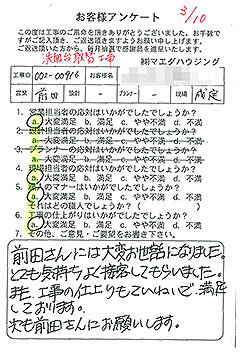 3/10
お客様アンケート
この度は工事のご用命を頂きありがとうございました。お手数で
すがご記入頂き、ご返送頂きますようお願い申し上げます。
ご返送頂いた方から、毎月抽選で感謝品を進呈いたします。
洗面台取替工事
㈱マエダハウジング
工事ID 002-00916 お客様名
営業 前田 設計 - プランナー - 現場
1. 営業担当者の応対はいかがでしたでしょうか?
a. 大変満足 b. 満足 c. やや不満 d. 不満
2. 設計担当者の応対はいかがでしたでしょうか?
a. 大変満足 b. 満足 c. やや不満 d. 不満
3. プランナーの応対はいかがでしたでしょうか?
a. 大変満足 b. 満足 c. やや不満 d. 不満
4. 現場担当者の応対はいかがでしたでしょうか?
a. 大変満足 b. 満足 c. やや不満 d. 不満
5. 職人のマナーはいかがでしたでしょうか?
それはどの職人でしょうか?( )
a. 大変満足 b. 満足 c. やや不満 d. 不満
6. 工事の仕上がりはいかがでしたでしょうか?
a. 大変満足 b. 満足 c. やや不満 d. 不満
7. その他、ご意見・ご要望をお書き下さい。
前田さんには大変お世話になりました。
とても気持ちよく接客してもらいました。
また、工事の仕上りもていねいで、満足
しております。
次も前田さんにお願いします。